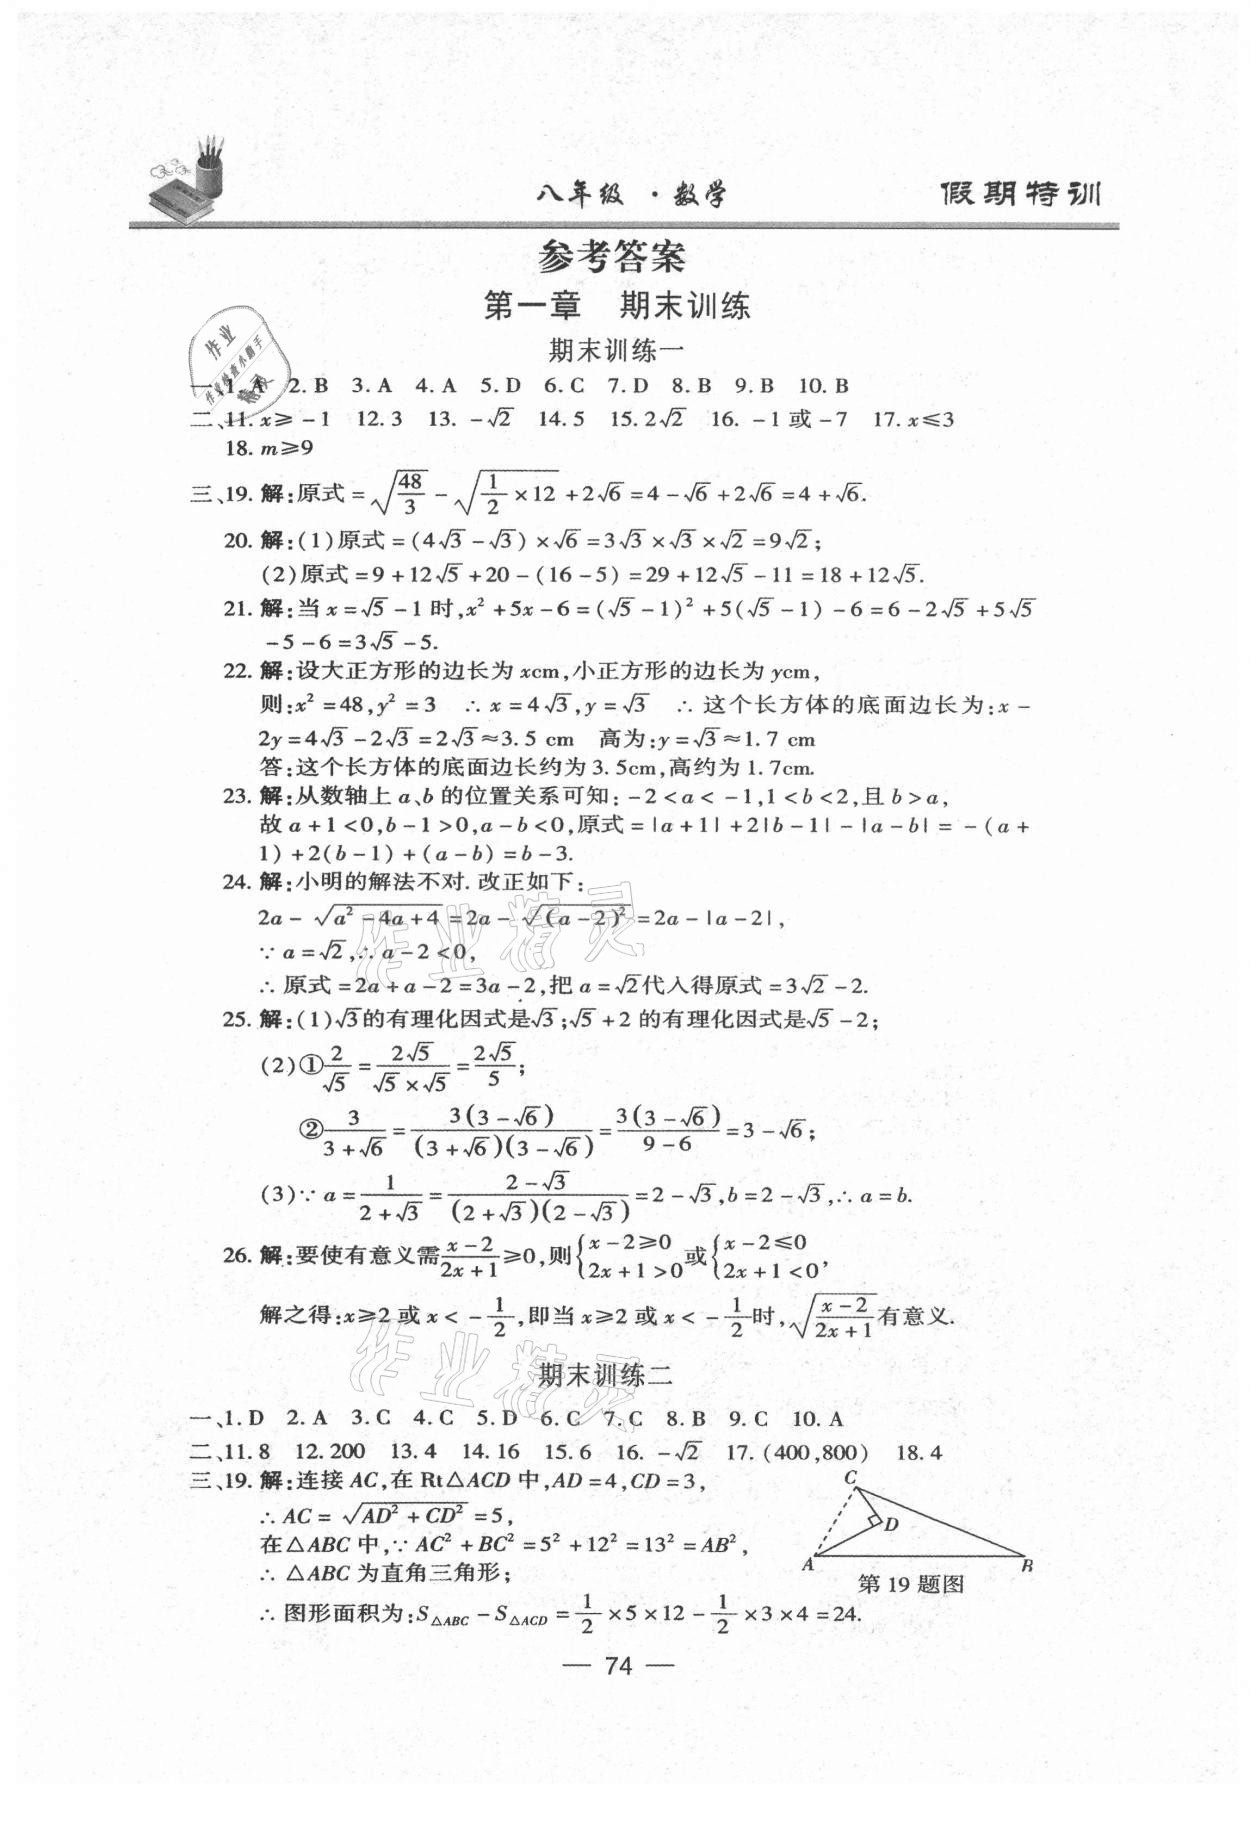 八年级·数学
假期特训
参考答案
第一章 期末训练
期末训练一
一、1. A 2. B 3. A 4. A 5. D 6. C 7. D 8. B 9. B 10. B
二、11. x≥-1 12. 3 13. -√2 14. 5 15. 2√2 16. -1或-7 17. x≤3
18. m≥9
三、19. 解:原式=√(48/3)-√(1/2×12)+2√6=4-√6+2√6=4+√6.
20. 解:(1)原式=(4√3-√3)×√6=3√3×√3×√2=9√2;
(2)原式=9+12√5+20-(16-5)=29+12√5-11=18+12√5.
21. 解:当x=√5-1时,x²+5x-6=(√5-1)²+5(√5-1)-6=6-2√5+5√5
-5-6=3√5-5.
22. 解:设大正方形的边长为xcm,小正方形的边长为ycm,
则:x²=48,y²=3 ∴x=4√3,y=√3 ∴这个长方体的底面边长为:x-
2y=4√3-2√3=2√3≈3.5 cm 高为:y=√3≈1.7 cm
答:这个长方体的底面边长约为3.5cm,高约为1.7cm.
23. 解:从数轴上a、b的位置关系可知:-2<a<-1,1<b<2,且b>a,
故a+1<0,b-1>0,a-b<0,原式=|a+1|+2|b-1|-|a-b|=-(a+
1)+2(b-1)+(a-b)=b-3.
24. 解:小明的解法不对.改正如下:
2a-√(a²-4a+4)=2a-√((a-2)²)=2a-|a-2|,
∵a=√2,∴a-2<0,
∴原式=2a+a-2=3a-2,把a=√2代入得原式=3√2-2.
25. 解:(1)√3的有理化因式是√3;√5+2的有理化因式是√5-2;
(2)①2/√5=2√5/(√5×√5)=2√5/5;
②3/(3+√6)=3(3-√6)/((3+√6)(3-√6))=3(3-√6)/(9-6)=3-√6;
(3)∵a=1/(2+√3)=(2-√3)/((2+√3)(2-√3))=2-√3,b=2-√3,∴a=b.
26. 解:要使有意义需(x-2)/(2x+1)≥0,则{x-2≥0 2x+1>0或{x-2≤0 2x+1<0,
解之得:x≥2或x<-1/2,即当x≥2或x<-1/2时,√((x-2)/(2x+1))有意义.
期末训练二
一、1. D 2. A 3. C 4. C 5. D 6. C 7. C 8. B 9. C 10. A
二、11. 8 12. 200 13. 4 14. 16 15. 6 16. -√2 17. (400,800) 18. 4
三、19. 解:连接AC,在Rt△ACD中,AD=4,CD=3,
∴AC=√(AD²+CD²)=5,
在△ABC中,∵AC²+BC²=5²+12²=13²=AB²,
∴△ABC为直角三角形;
∴图形面积为:S△ABC-S△ACD=1/2×5×12-1/2×3×4=24.
C
D
A
B
第19题图
— 74 —
作业精灵
作业精灵
作业
作业检查小助手
精灵